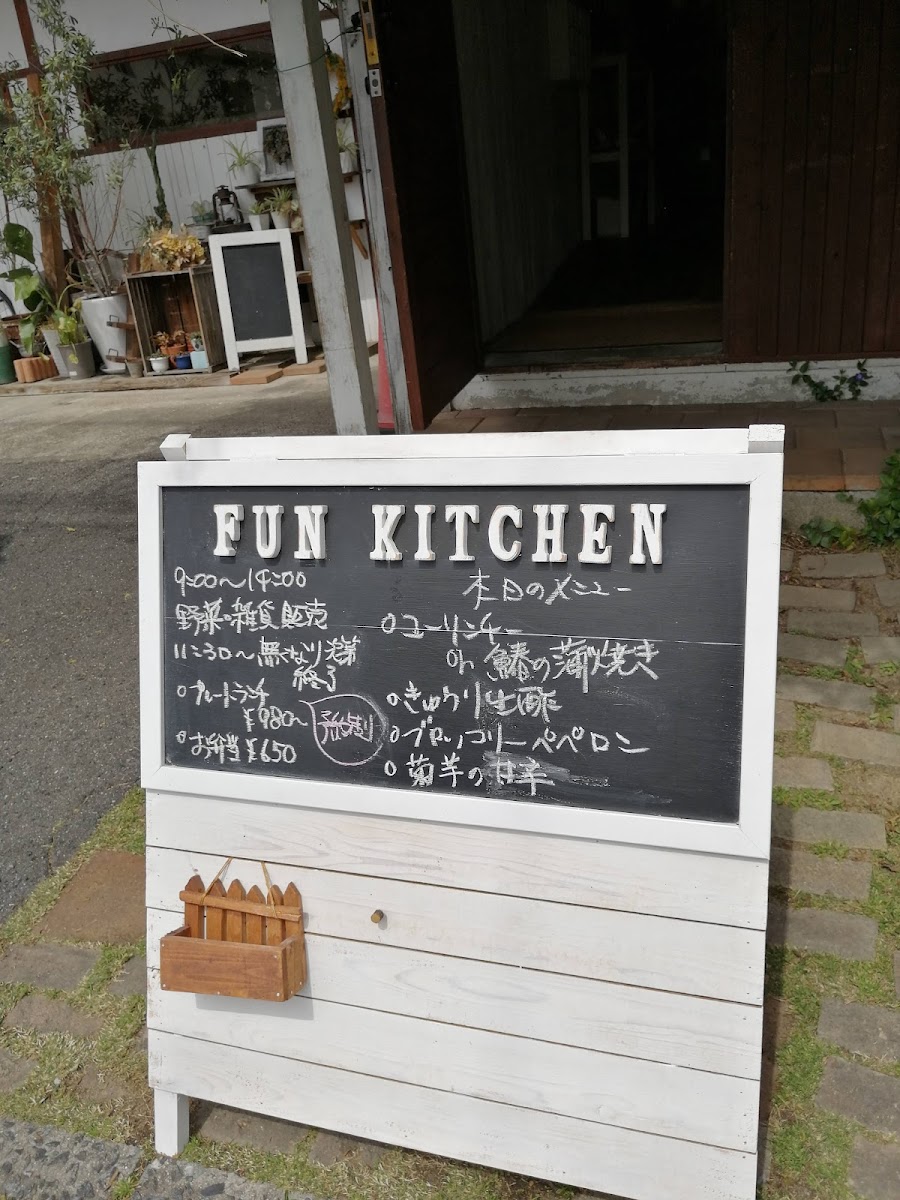 FUN KITCHEN
9:00〜14:00
野菜・雑貨販売
11:30〜無くなり次第
終了
○プレートランチ
¥980〜
○お弁当¥650
本日のメニュー
○ユーリンチー
or 鰆の蒲焼き
○きゅうり生酢
○ブロッコリーペペロン
○菊芋の甘辛